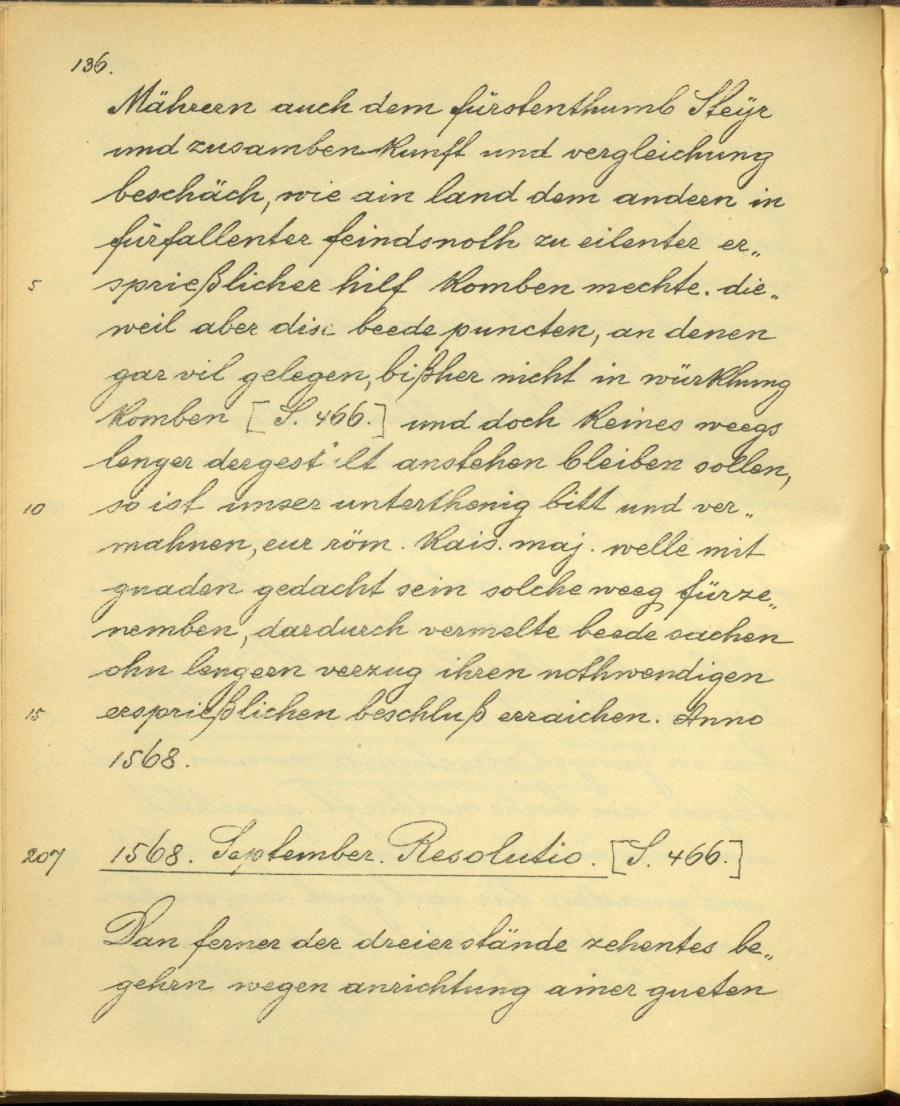 136.
Mährern auch dem fürstenthumb Steÿr
und zusambenkunft und vergleichung
beschäch, wie ain land dem andern in
fürfallenter feindsnoth zu eilenter er„
5 sprießlicher hilf komben mechte. die„
weil aber dise beede puncten, an denen
gar vil gelegen, bißher nicht in würkhung
komben [S. 466.] und doch keines weegs
lenger dergestalt anstehen bleiben sollen,
10 so ist unser unterthenig bitt und ver„
mahnen, eur röm. kais. maj. welle mit
gnaden gedacht sein solche weeg fürze„
nemben, dardurch vermelte beede sachen
ohn lengern verzug ihren nothwendigen
15 ersprießlichen beschluß erraichen. Anno
1568.
207 1568. September. Resolutio. [S. 466.]
Dan ferner der dreier stände zehentes be„
gehrn wegen anrichtung ainer gueten